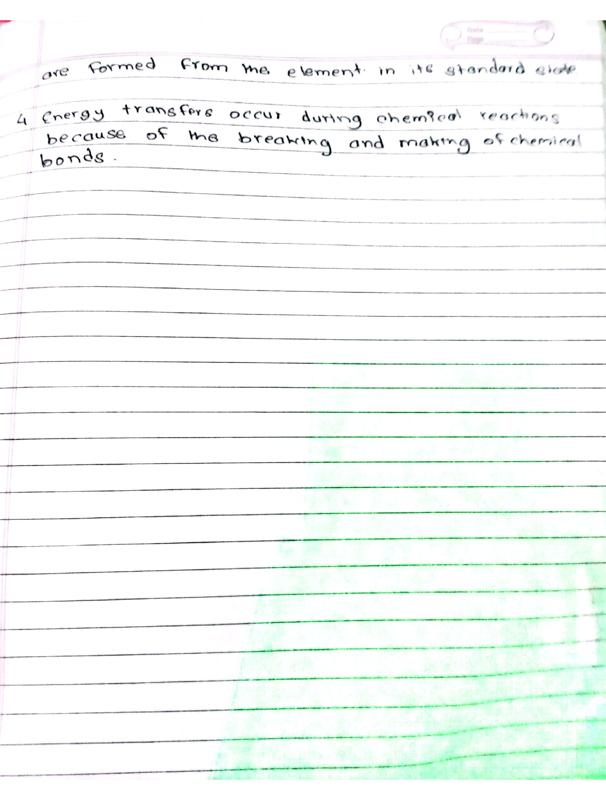 are formed from the element in its standard state
4 Energy transfers occur during chemical reactions
because of the breaking and making of chemical
bonds.